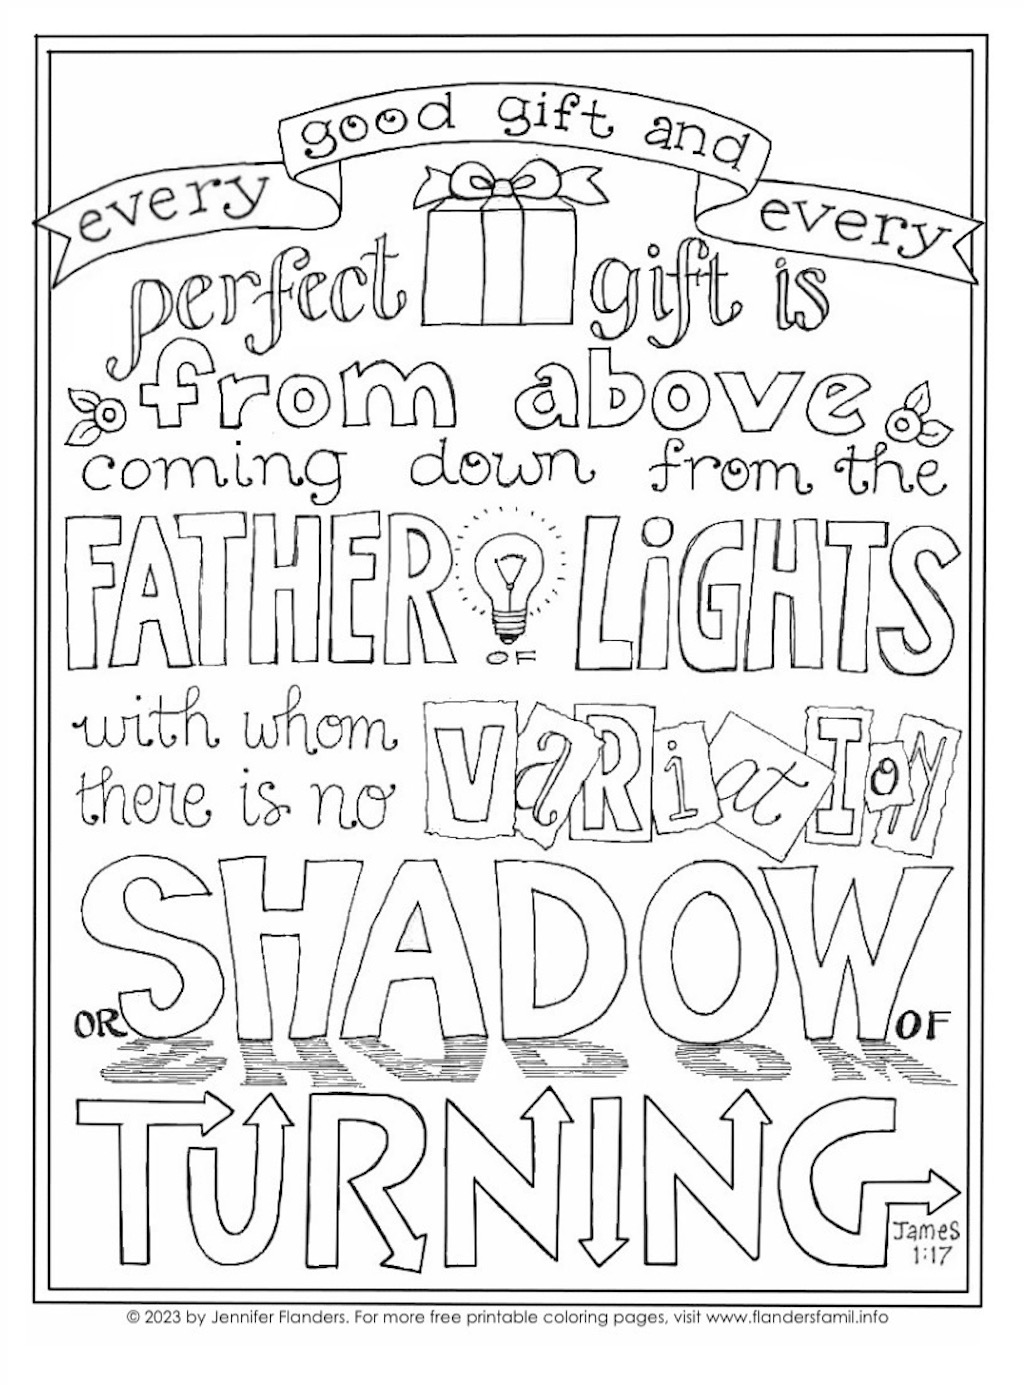 every good gift and every
perfect gift is
from above
coming down from the
FATHER OF LiGHTS
with whom
there is no VaRiatIoN
OR SHADOW OF
TURNING
James
1:17
© 2023 by Jennifer Flanders. For more free printable coloring pages, visit www.flandersfamil.info